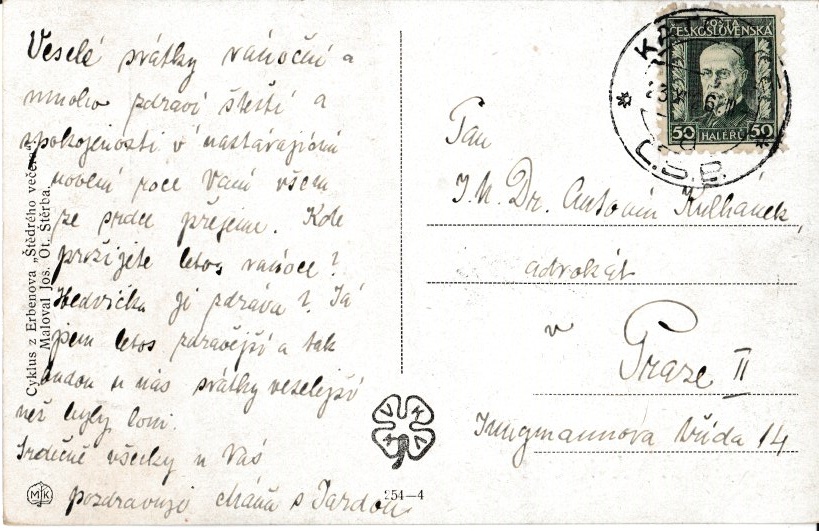 Veselé svátky vánoční a
mnoho zdraví štěstí a
spokojenosti v nastávajícím
novém roce Vám všem
ze srdce přejeme. Kde
prožijete letos vánoce?
Hedvička je zdráva? Já
jsem letos zdravější a tak
budou u nás svátky veselejší
než byly loni.
Srdečně všecky u Vás
pozdravuje s Jardou
Cyklus z Erbenova „Štědrého večera“.
Maloval Jos. Ot. Štěrba.
MK
V K A
254—4
POŠTA
ČESKOSLOVENSKÁ
50 HALÉŘŮ 50
Č.S.P.
Pan
J. U. Dr. Antonín Kulhánek,
advokát
v
Praze II
Jungmannova třída 14